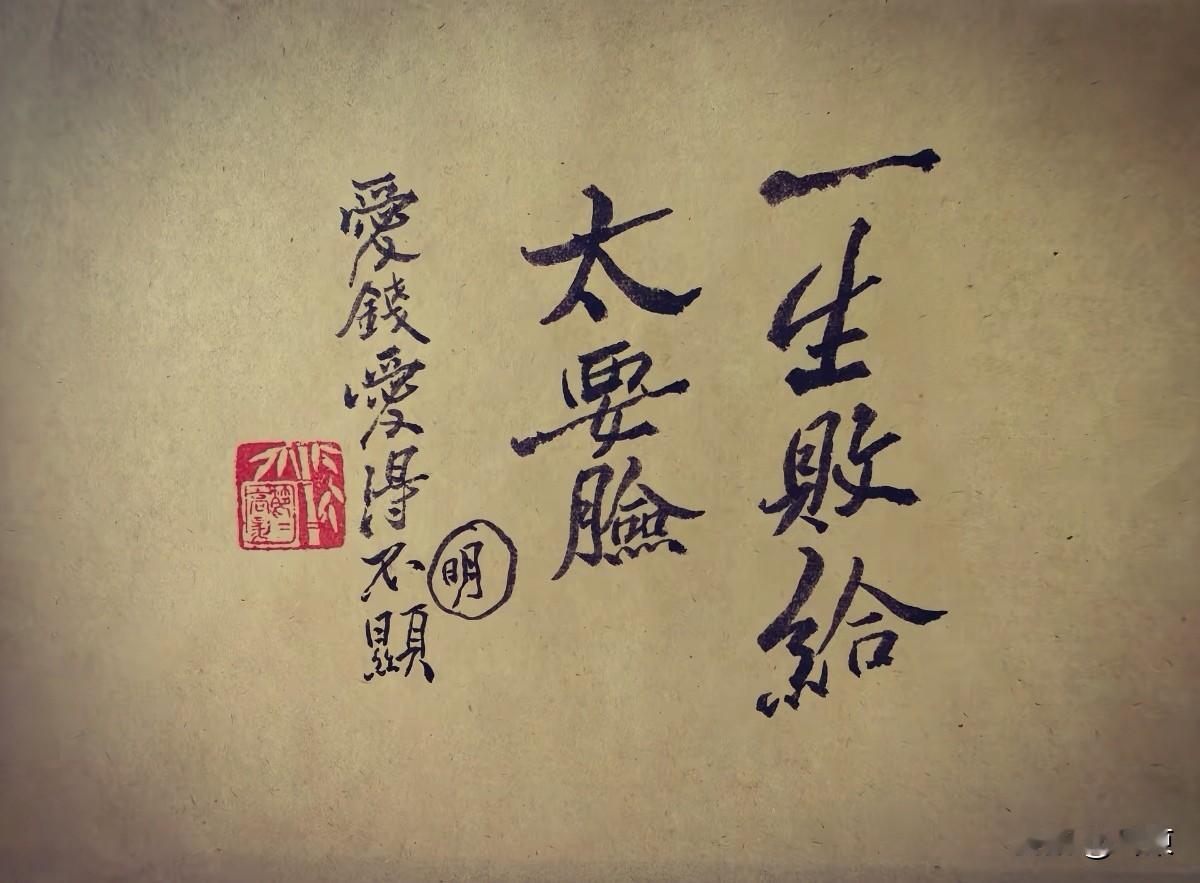 一生敗給
太要臉
明
愛錢愛得不顯